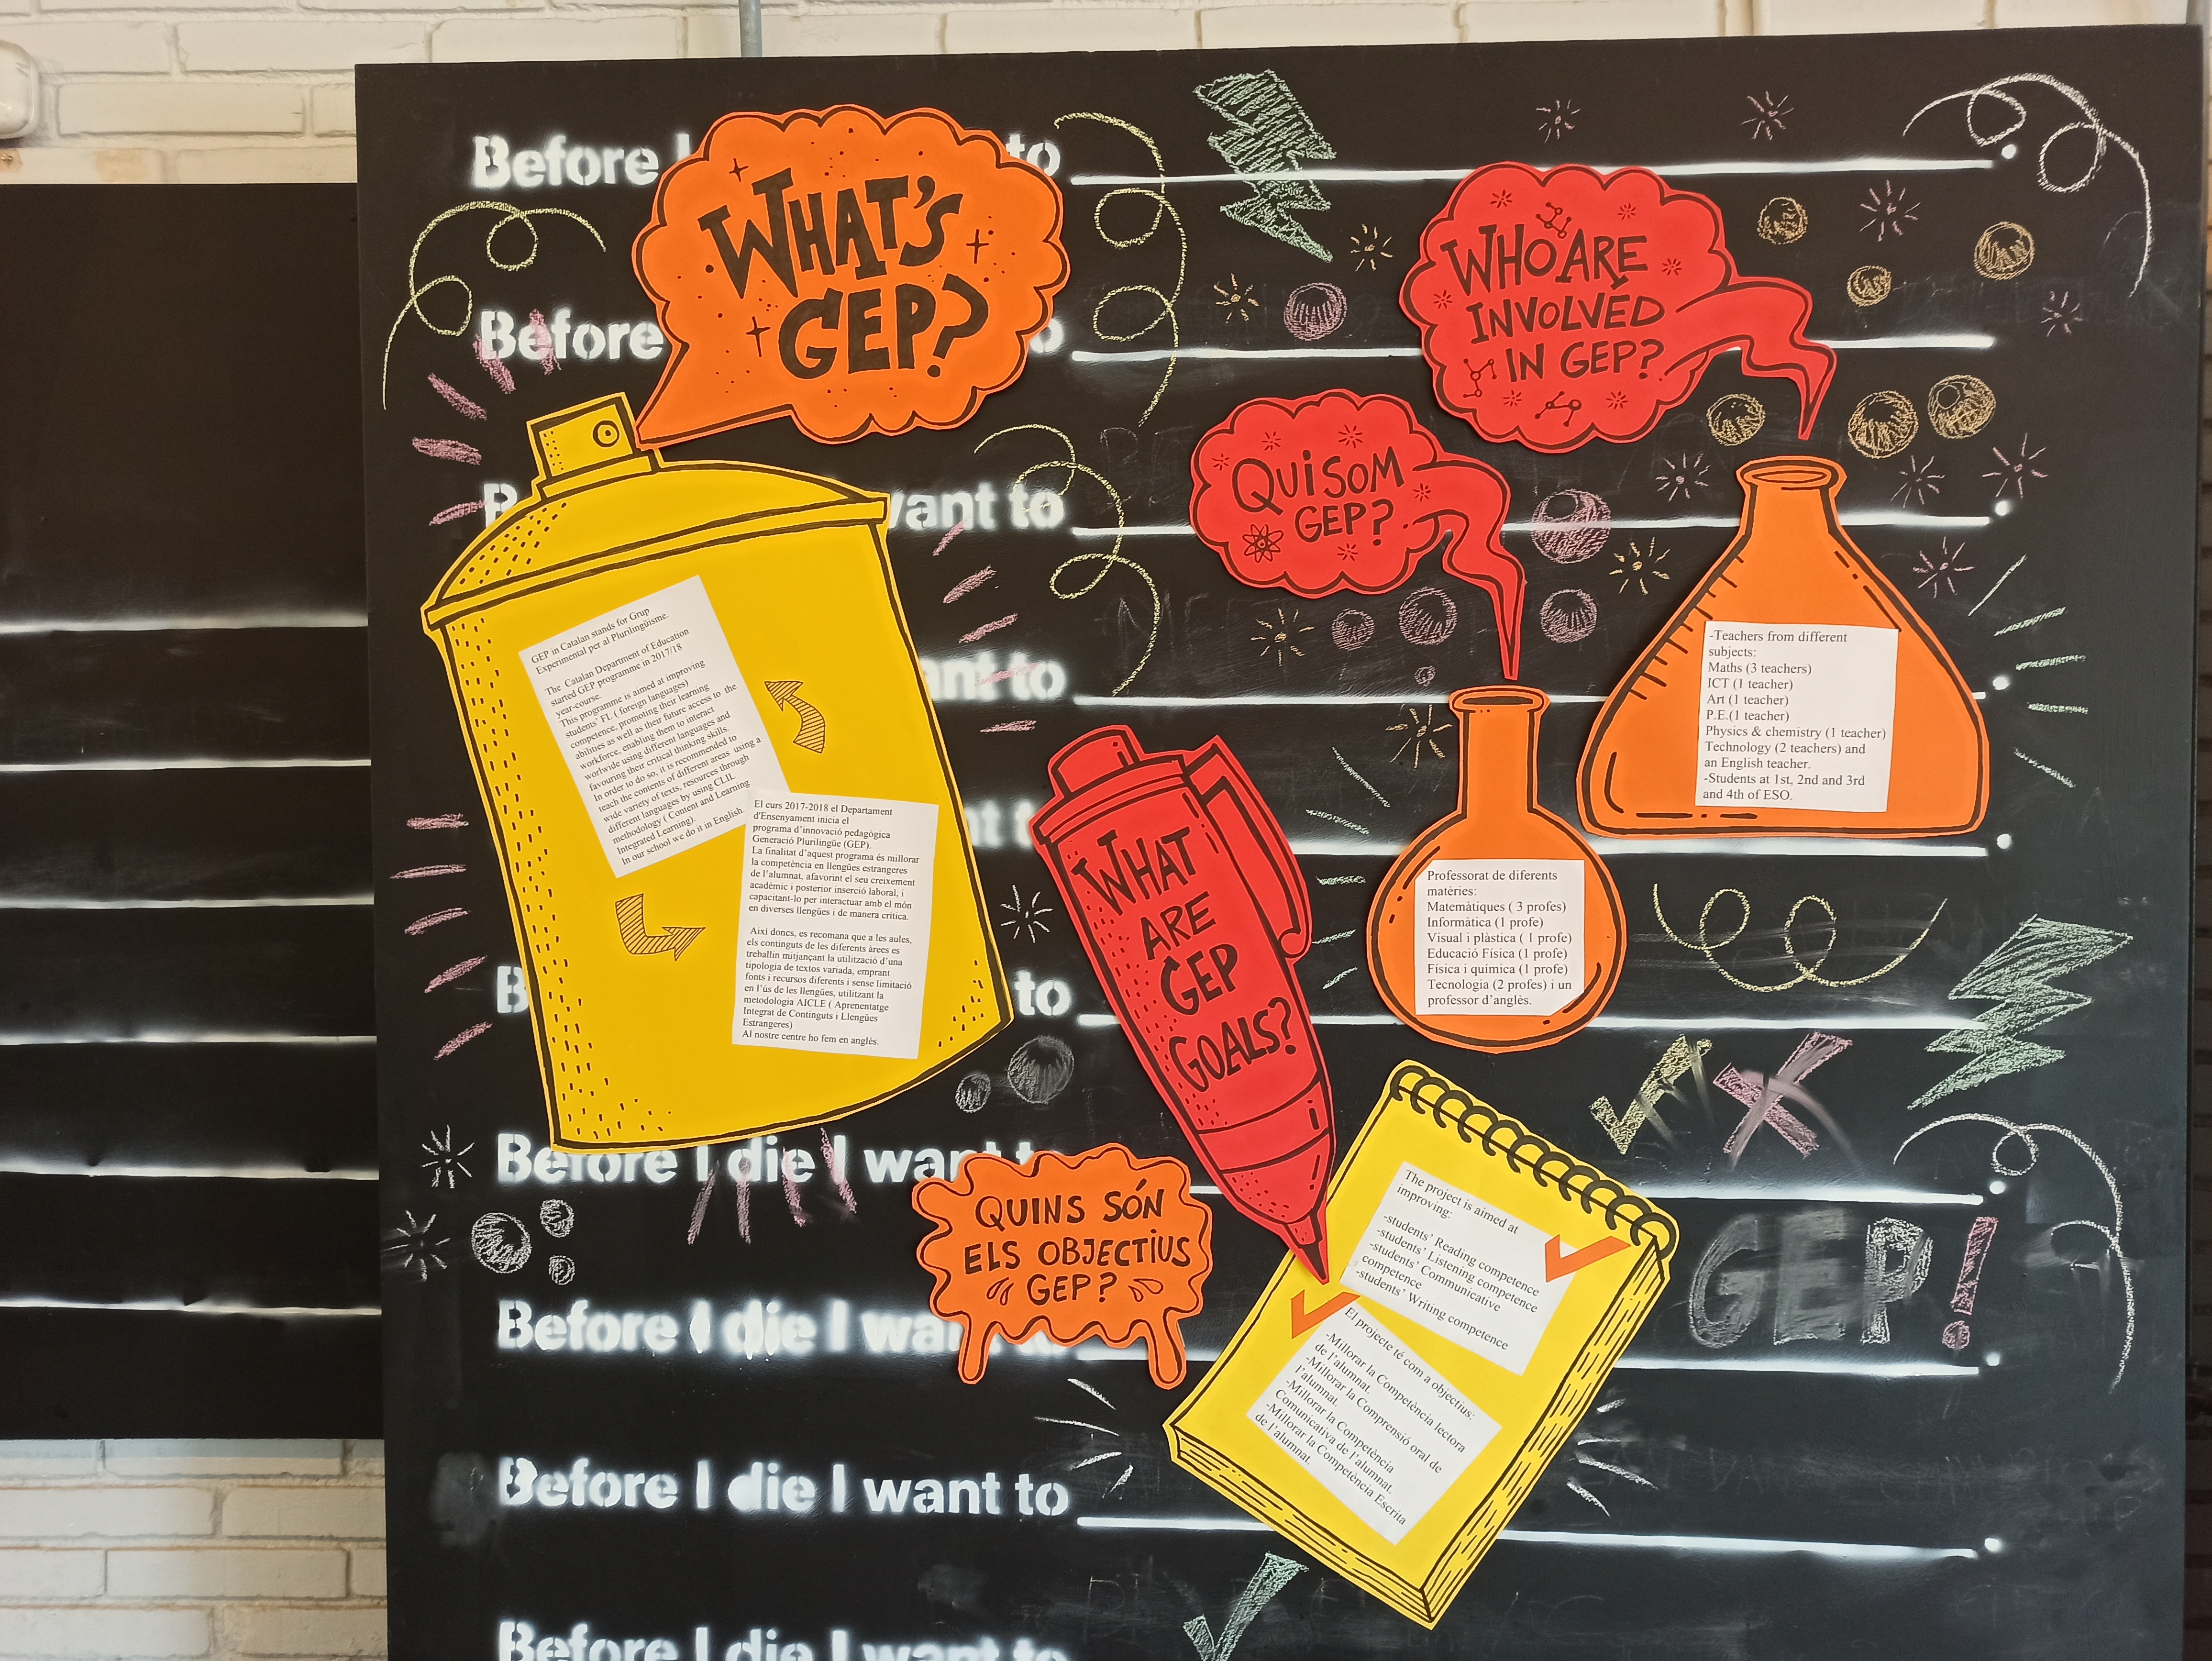 Before I to
WHAT'S
GEP?
Before
want to
want to
to
Before I die I want to
Before I die I wa
Before I die I want to
Before I die I want to
GEP in Catalan stands for Grup
Experimental per al Plurilingüisme.
The Catalan Department of Education
started GEP programme in 2017/18
year-course.
This programme is aimed at improving
students' FL ( foreign languages)
competence, promoting their learning
abilities as well as their future access to the
workforce, enabling them to interact
worlwide using different languages and
favouring their critical thinking skills.
In order to do so, it is recommended to
teach the contents of different areas using a
wide variety of texts, resources through
different languages by using CLIL
methodology ( Content and Learning
Integrated Learning).
In our school we do it in English.
El curs 2017-2018 el Departament
d'Ensenyament inicia el
programa d'innovació pedagògica
Generació Plurilingüe (GEP).
La finalitat d'aquest programa és millorar
la competència en llengües estrangeres
de l'alumnat, afavorint el seu creixement
acadèmic i posterior inserció laboral, i
capacitant-lo per interactuar amb el món
en diverses llengües i de manera crítica.
Així doncs, es recomana que a les aules,
els continguts de les diferents àrees es
treballin mitjançant la utilització d'una
tipologia de textos variada, emprant
fonts i recursos diferents i sense limitació
en l'ús de les llengües, utilitzant la
metodologia AICLE ( Aprenentatge
Integrat de Continguts i Llengües
Estrangeres)
Al nostre centre ho fem en anglès.
WHO ARE
INVOLVED
IN GEP?
QUI SOM
GEP?
-Teachers from different
subjects:
Maths (3 teachers)
ICT (1 teacher)
Art (1 teacher)
P.E.(1 teacher)
Physics & chemistry (1 teacher)
Technology (2 teachers) and
an English teacher.
-Students at 1st, 2nd and 3rd
and 4th of ESO.
Professorat de diferents
matèries:
Matemàtiques ( 3 profes)
Informàtica (1 profe)
Visual i plàstica ( 1 profe)
Educació Física (1 profe)
Física i química (1 profe)
Tecnologia (2 profes) i un
professor d'anglès.
WHAT
ARE
GEP
GOALS?
QUINS SÓN
ELS OBJECTIUS
GEP?
The project is aimed at
improving:
-students' Reading competence
-students' Listening competence
-students' Communicative
competence
-students' Writing competence
El projecte té com a objectius:
-Millorar la Competència lectora
de l'alumnat.
-Millorar la Comprensió oral de
l'alumnat.
-Millorar la Competència
Comunicativa de l'alumnat.
-Millorar la Competència Escrita
de l'alumnat.
GEP!